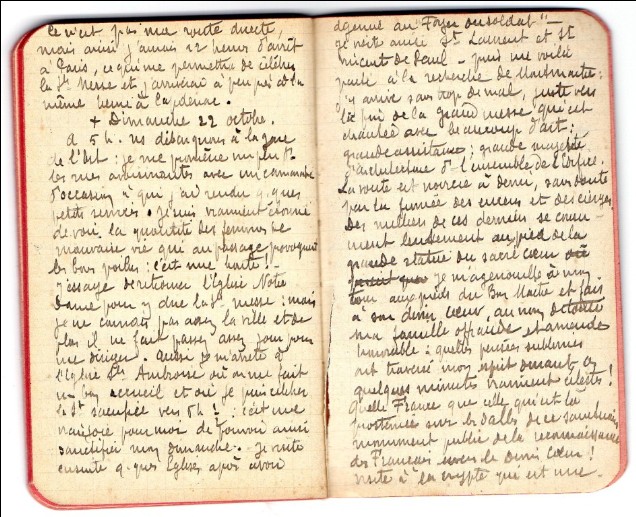 Ce n'est pas ma route directe,
mais ainsi j'aurais 12 heures d'arrêt
à Paris, ce qui me permettra de célébrer
la Ste Messe et j'arriverai à peu près à la
même heure à Capdenac.
+ Dimanche 22 octobre.
A 5 h. ns débarquons à la gare
de l'Est : je me promène un peu ds
les rues avoisinantes avec un camarade
d'occasion à qui j'ai rendu q. ques
petits services. Je suis vraiment étonné
de voir la quantité des femmes de
mauvaise vie qui au passage provoquent
les bons poilus : c'est une honte !
J'essaye de retrouver l'église Notre
Dame pour y dire la Ste messe : mais
je ne connais pas assez la ville et de
plus il ne fait pas assez jour pour
me diriger. Aussi je m'arrête à
l'église St Ambroise où on me fait
un bon accueil et où je puis célébrer
le St sacrifice vers 5h ½ : c'est une
vraie joie pour moi de pouvoir ainsi
sanctifier mon dimanche. Je visite
ensuite q. ques églises après avoir
au "Foyer du soldat" –
Je visite aussi St Laurent et St
Vincent de Paul – puis me voilà
parti à la recherche de Montmartre :
j'y arrive sans trop de mal, juste vers
la fin de la grand messe qui est
chantée avec beaucoup d'art :
grande assistance ; grande majesté
d'architecture ds l'ensemble de l'édifice.
La voûte est noircie à demi, sans doute
par la fumée des encens et des cierges.
Des milliers de ces derniers se consu-
ment lentement au pied de la
grande statue du Sacré Cœur
je m'agenouille à mon
tour aux pieds du Bon Maître et fais
à son divin Cœur, au nom de toute
ma famille offrande et amende
honorable : quelles pensées sublimes
ont traversé mon esprit durant ces
quelques minutes vraiment célestes !
Quelle France que celle qui est là
prosternée sur les dalles de ce sanctuaire
monument public de la reconnaissance
des Français envers le Divin Cœur !
visite à la crypte qui est une